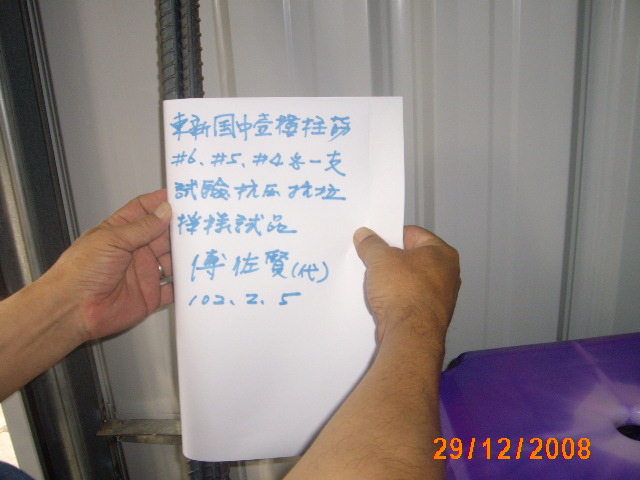 東新国中壹樓柱筋
#6、#5、#4各一支
試驗抗压抗拉
採樣試品
傅佐賢(代)
102.2.5
29/12/2008